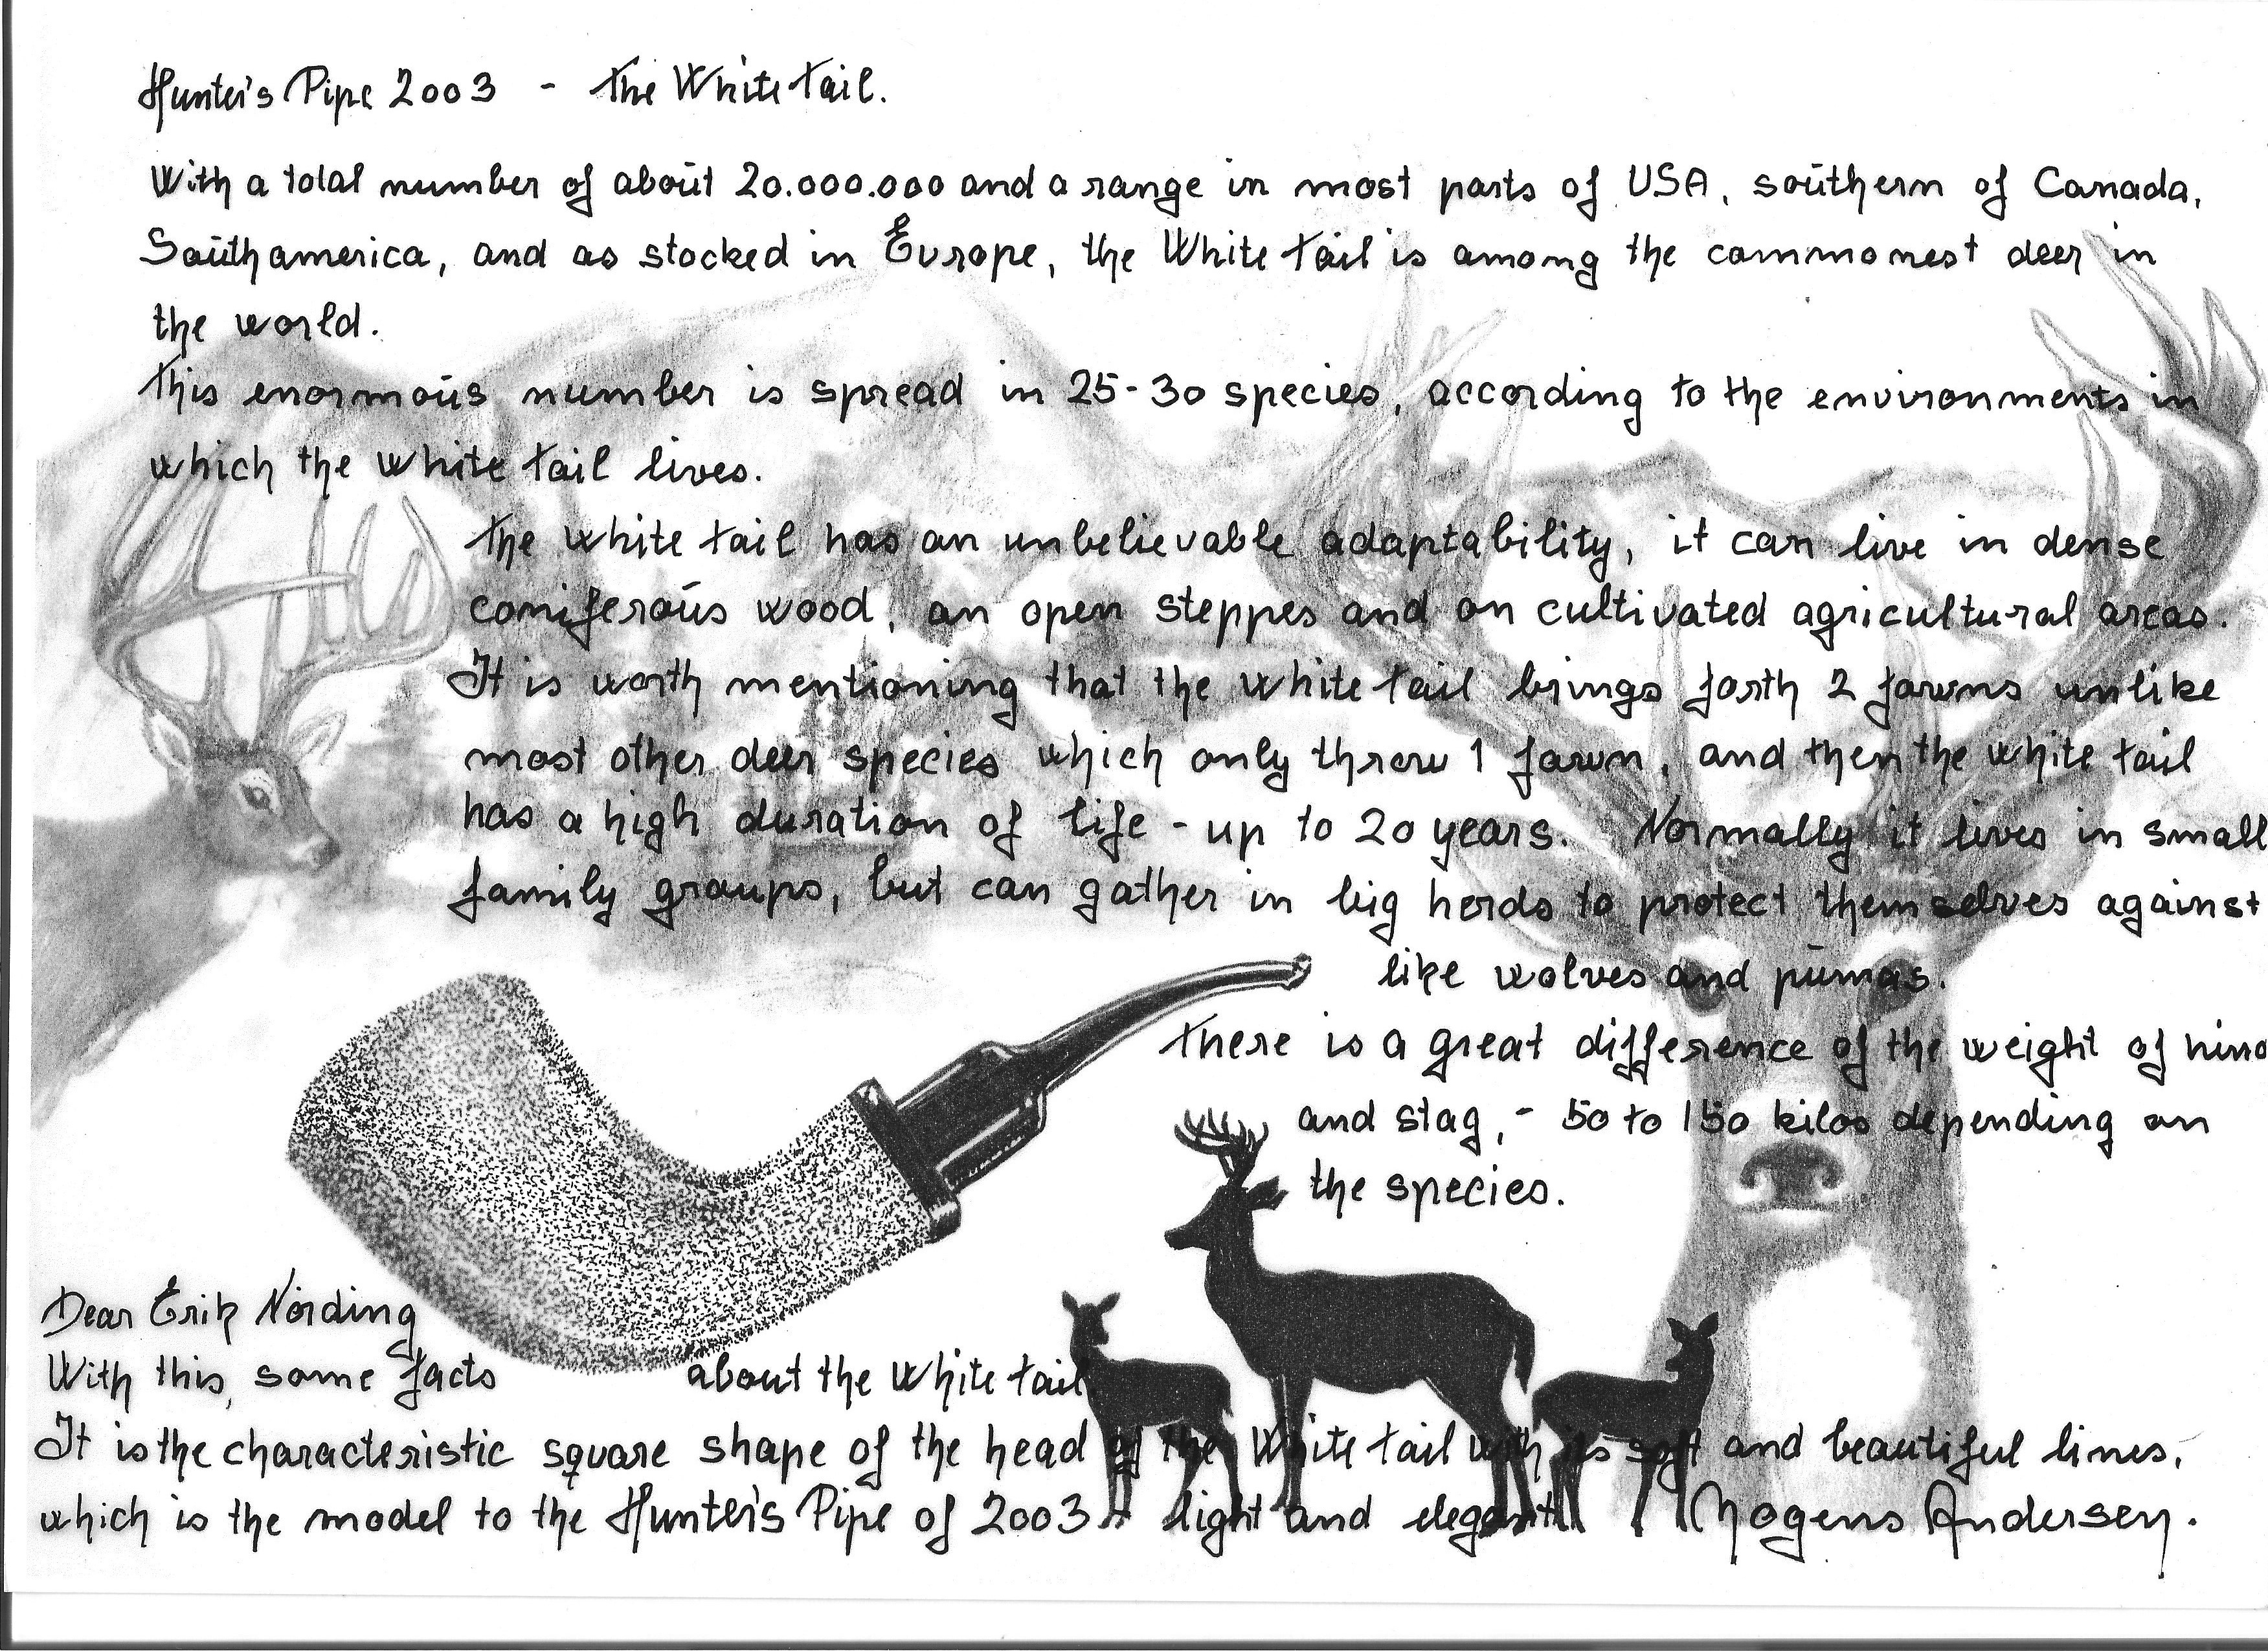 Hunter's Pipe 2003 - The White tail.
With a total number of about 20.000.000 and a range in most parts of USA, southern of Canada,
Southamerica, and as stocked in Europe, the White tail is among the commonest deer in
the world.
This enormous number is spread in 25-30 species, according to the environments in
which the white tail lives.
The white tail has an unbelievable adaptability, it can live in dense
coniferous wood, on open steppes and on cultivated agricultural areas.
It is worth mentioning that the white tail brings forth 2 fawns unlike
most other deer species which only threw 1 fawn, and then the white tail
has a high duration of life - up to 20 years. Normally it lives in small
family groups, but can gather in big herds to protect themselves against
like wolves and pumas.
There is a great difference of the weight of hind
and stag, - 50 to 150 kilos depending on
the species.
Dear Erik Nörding
With this, some facts about the White tail.
It is the characteristic square shape of the head of the White tail with its soft and beautiful lines,
which is the model to the Hunter's Pipe of 2003 - light and elegant. Mogens Andersen.